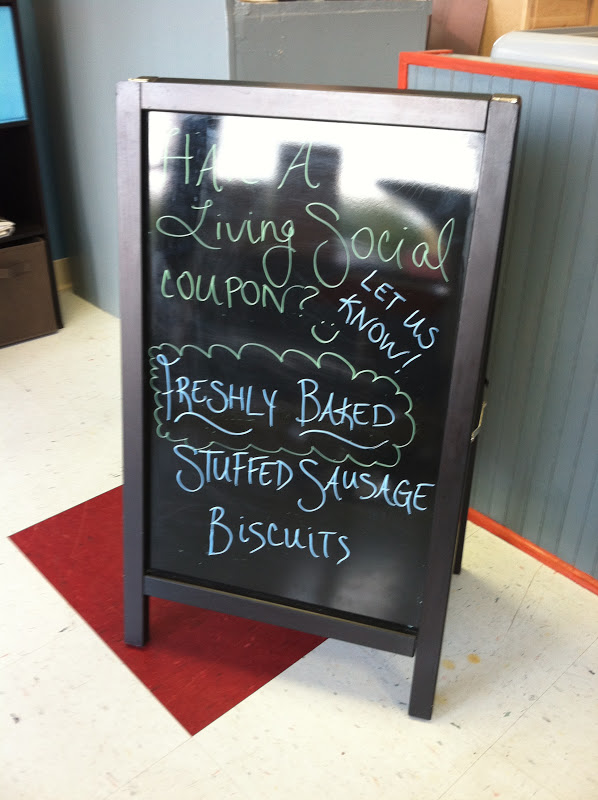 A
Living Social
COUPON?
LET US
KNOW!
FRESHLY BAKED
STUFFED SAUSAGE
BISCUITS